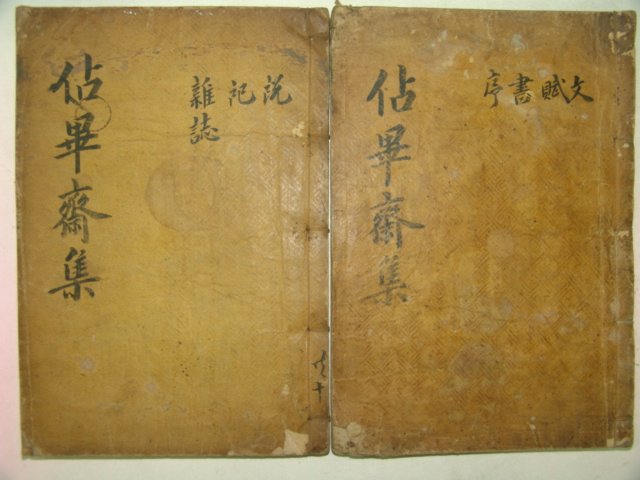 佔畢齋集
文賦書序
佔畢齋集
說記雜誌
共十